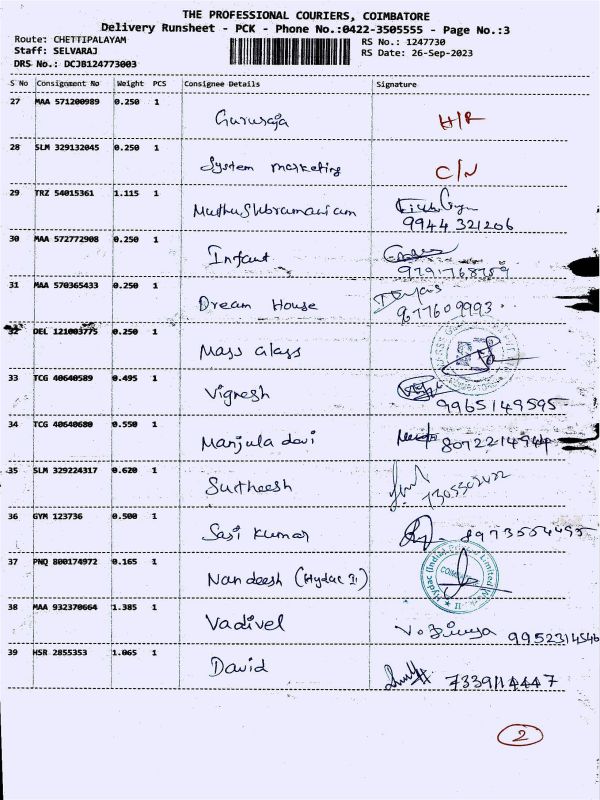 THE PROFESSIONAL COURIERS, COIMBATORE
Delivery Runsheet - PCK - Phone No.:0422-3505555 - Page No.:3
Route: CHETTIPALAYAM
Staff: SELVARAJ
DRS No.: DCJB124773003
RS No.: 1247730
RS Date: 26-Sep-2023
S No Consignment No Weight PCS Consignee Details Signature
27 MAA 571200989 0.250 1 Gururaja H/R
28 SLM 329132045 0.250 1 System marketing C/N
29 TRZ 54015361 1.115 1 MuthuSubramaniam
9944321206
30 MAA 572772908 0.250 1 Infant
9791768759
31 MAA 570365433 0.250 1 Dream House
9677609993
32 DEL 121003775 0.250 1 Mass Glass
33 TCG 40640589 0.495 1 Vignesh
9965149595
34 TCG 40640680 0.550 1 Manjula devi 8072214944
35 SLM 329224317 0.620 1 Surtheesh
7305502422
36 GYM 123736 0.500 1 Sasi Kumar 8973554495
37 PNQ 800174972 0.165 1 Nandeesh (Hydac II)
Hydac (India) Private Limited
38 MAA 932370664 1.385 1 Vadivel 9952314546
39 HSR 2855353 1.065 1 David 7339114447
2